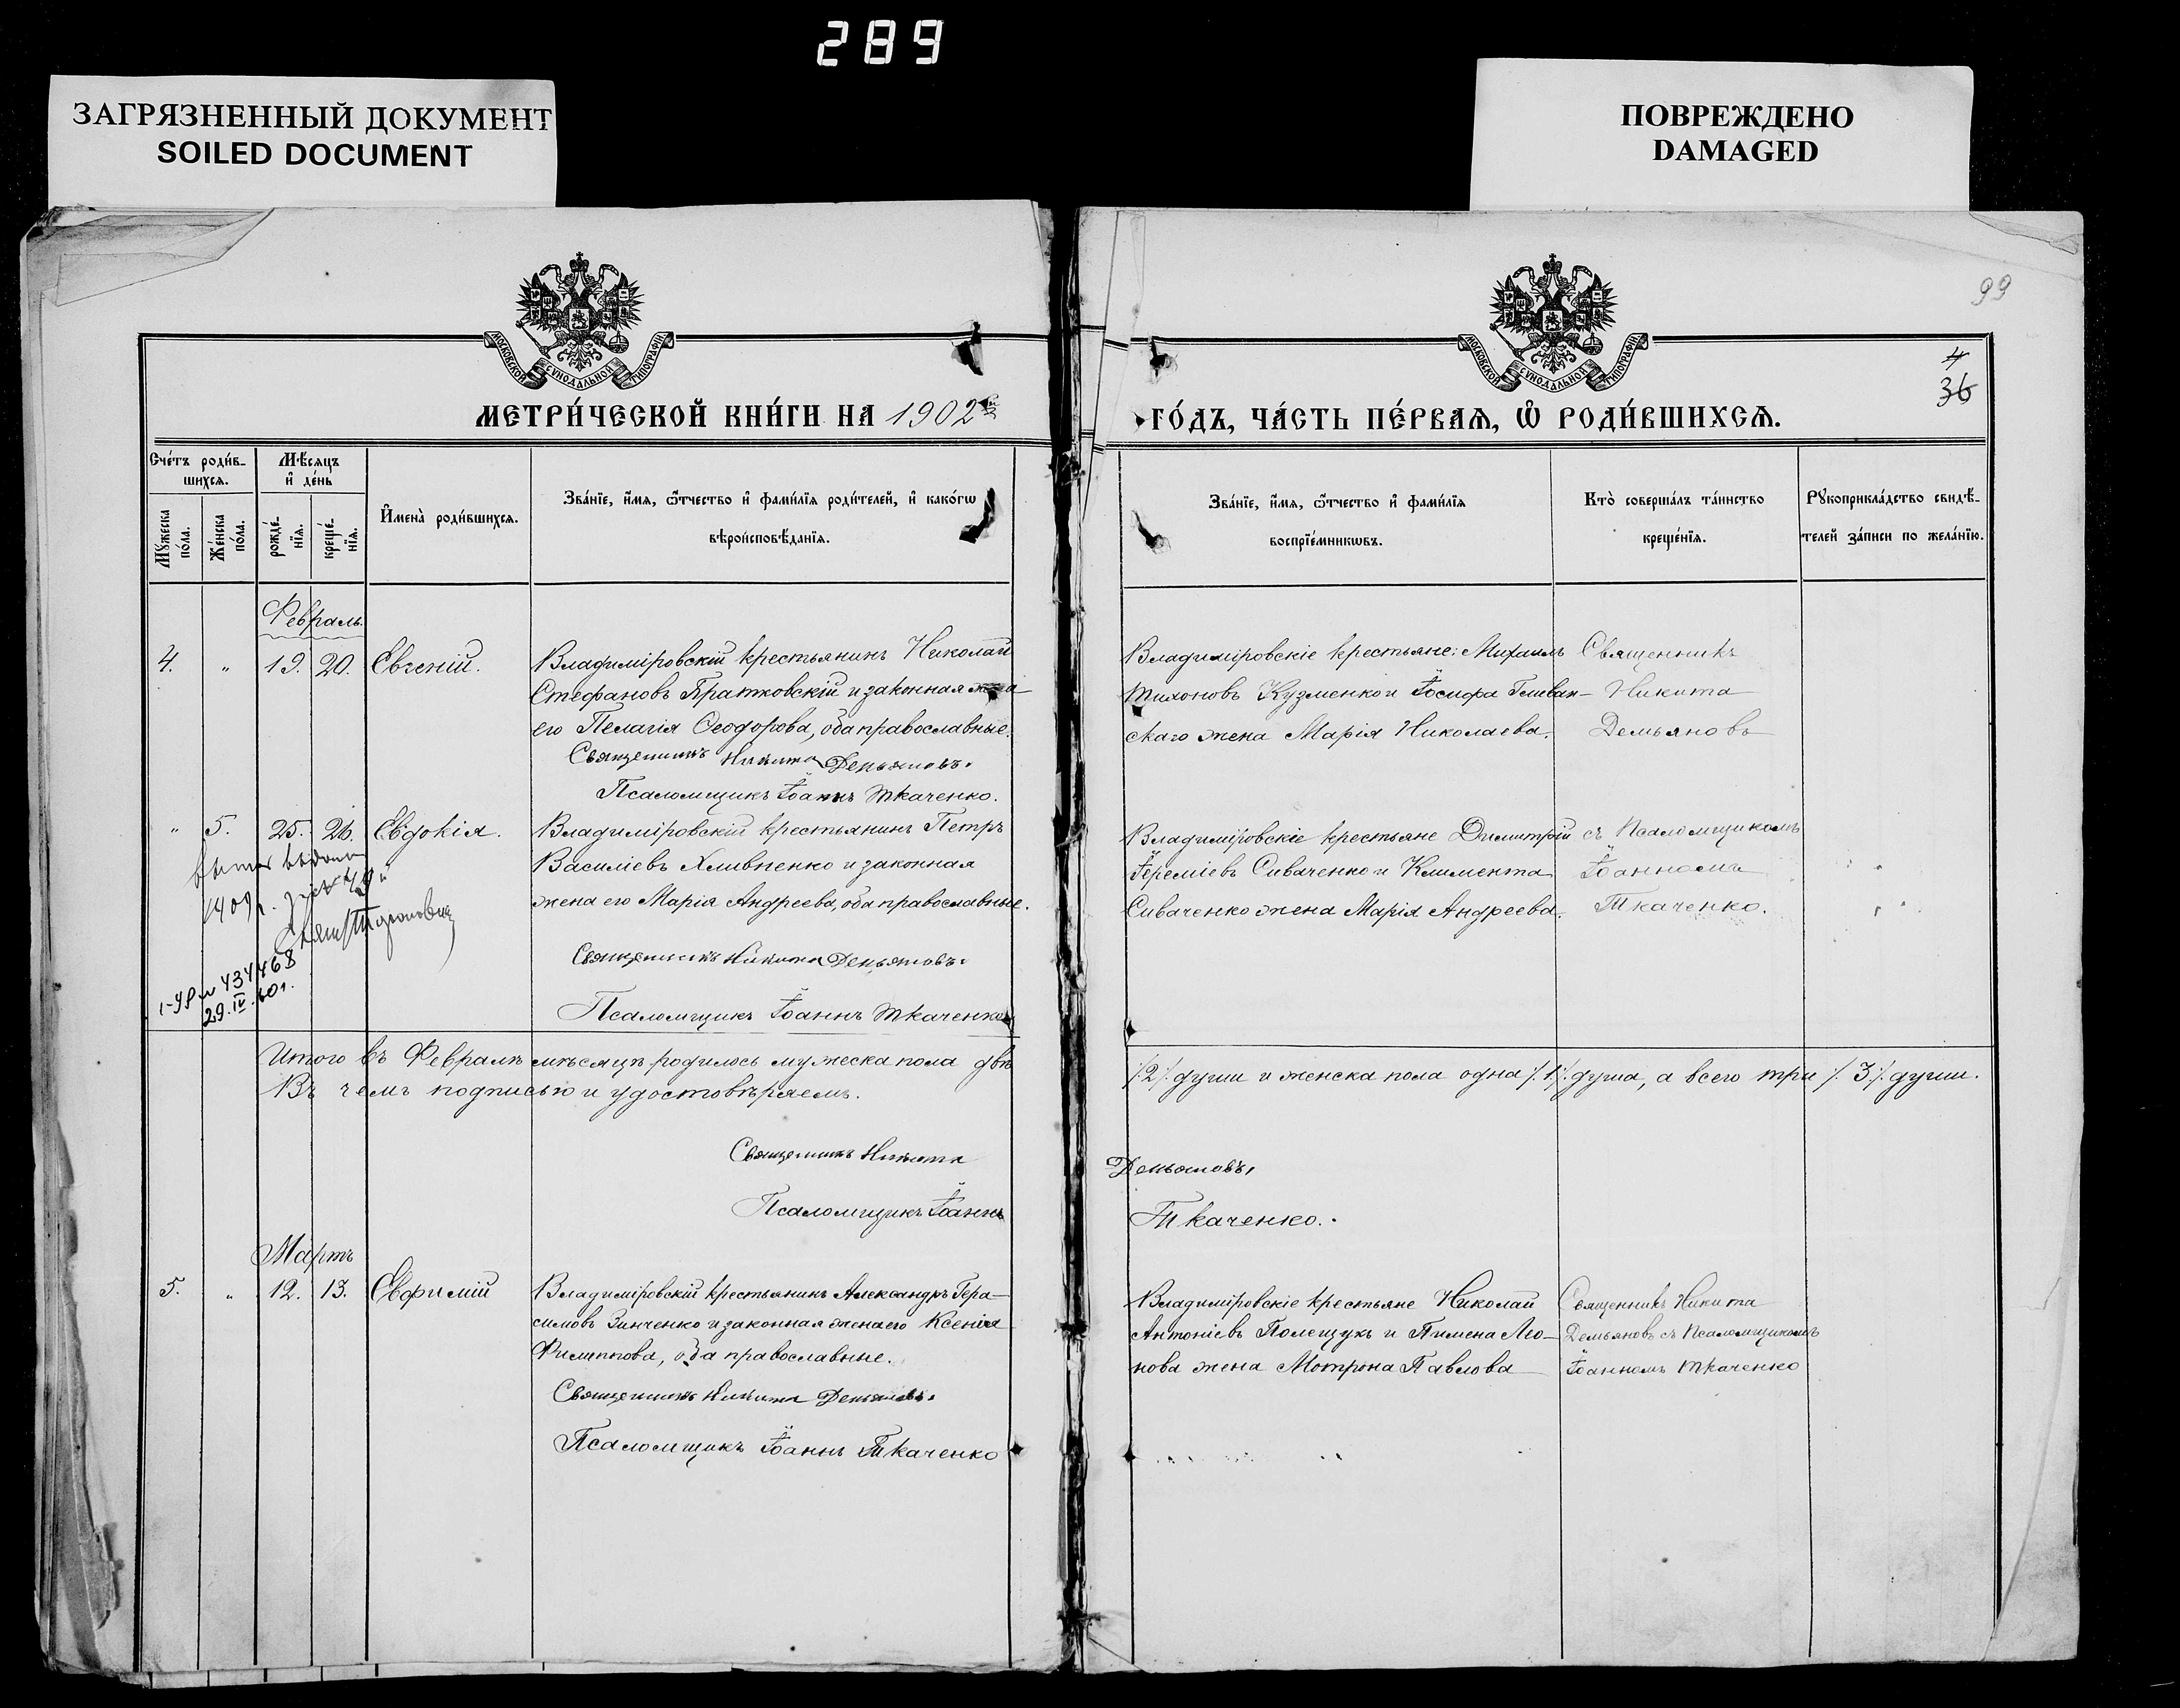 289
ЗАГРЯЗНЕННЫЙ ДОКУМЕНТ
SOILED DOCUMENT
ПОВРЕЖДЕНО
DAMAGED
99
4
36
МОСКОВСКОЙ СѴНОДАЛЬНОЙ ТИПОГРАФІИ
МОСКОВСКОЙ СѴНОДАЛЬНОЙ ТИПОГРАФІИ
МЕТРИ́ЧЕСКОЙ КНИ́ГИ НА 1902
ГО́ДЪ, ЧА́СТЬ ПЕ́РВАЯ, Ѡ҆ РОДИ́ВШИХСѦ.
Сче́тъ роди́в-
шихсѧ.
Мꙋ́жеска
по́ла.
Же́нска
по́ла.
Мѣ́сѧцъ
и҆ де́нь
рожде́-
нїѧ.
креще́-
нїѧ.
И҆мена̀ роди́вшихсѧ.
Зва́нїе, и҆́мѧ, ѻ҆́тчество и҆ фами́лїѧ роди́телей, и҆ како́гѡ
вѣроисповѣ́данїѧ.
Зва́нїе, и҆́мѧ, ѻ҆́тчество и҆ фами́лїѧ
воспрїе́мникѡвъ.
Кто̀ соверша́лъ та́инство
креще́нїѧ.
Рꙋкоприкла́дство свидѣ́-
телей за́писи по жела́нїю.
Февраль.
4. " 19. 20. Евгеній.
Владиміровскій крестьянинъ Николай
Стефановъ Братковскій и законная жена
его Пелагія Ѳеодорова, оба православные.
Священникъ Никита Демьяновъ.
Псаломщикъ Іоаннъ Ткаченко.
Владиміровскіе крестьяне: Михаилъ
Тихоновъ Кузменко и Іосифа Гливан-
скаго жена Марія Николаева.
Священникъ
Никита
Демьяновъ
" 5. 25. 26. Евдокія.
Владиміровскій крестьянинъ Петръ
Василіевъ Хливненко и законная
жена его Марія Андреева, оба православные.
Священникъ Никита Демьяновъ.
Псаломщикъ Іоаннъ Ткаченко
434468
29.IV.
Владиміровскіе крестьяне Димитрій
Іереміевъ Сиваченко и Климента
Сиваченко жена Марія Андреева.
съ Псаломщикомъ
Іоанномъ
Ткаченко.
Итого въ Февралѣ мѣсяцѣ родилось мужеска пола двѣ
/.2/. души и женска пола одна /.1./. душа, а всего три /. 3./. души.
Въ чемъ подписью и удостовѣряемъ.
Священникъ Никита
Демьяновъ,
Псаломщикъ Іоаннъ
Ткаченко.
Мартъ
5. " 12. 13. Евфимій
Владиміровскій крестьянинъ Александръ Гера-
симовъ Зинченко и законная жена его Ксенія
Филиппова, оба православные.
Священникъ Никита Демьяновъ.
Псаломщикъ Іоаннъ Ткаченко
Владиміровскіе крестьяне Николай
Антоніевъ Полещукъ и Пимена Лео-
нова жена Мотрона Павлова
Священникъ Никита
Демьяновъ съ Псаломщикомъ
Іоанномъ Ткаченко